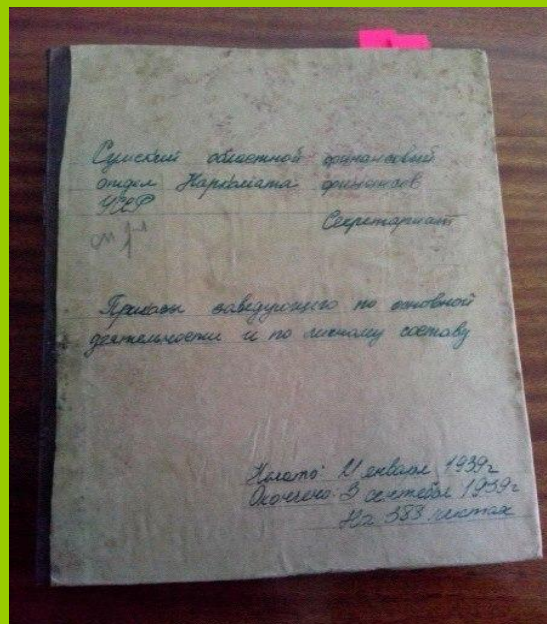 Сумский областной финансовый
отдел Наркомата финансов
УССР
Секретариат
Приказы заведующего по основной
деятельности и по личному составу
Начато: 21 января 1939г
Окончено: 3 сентября 1939г
На 383 листах